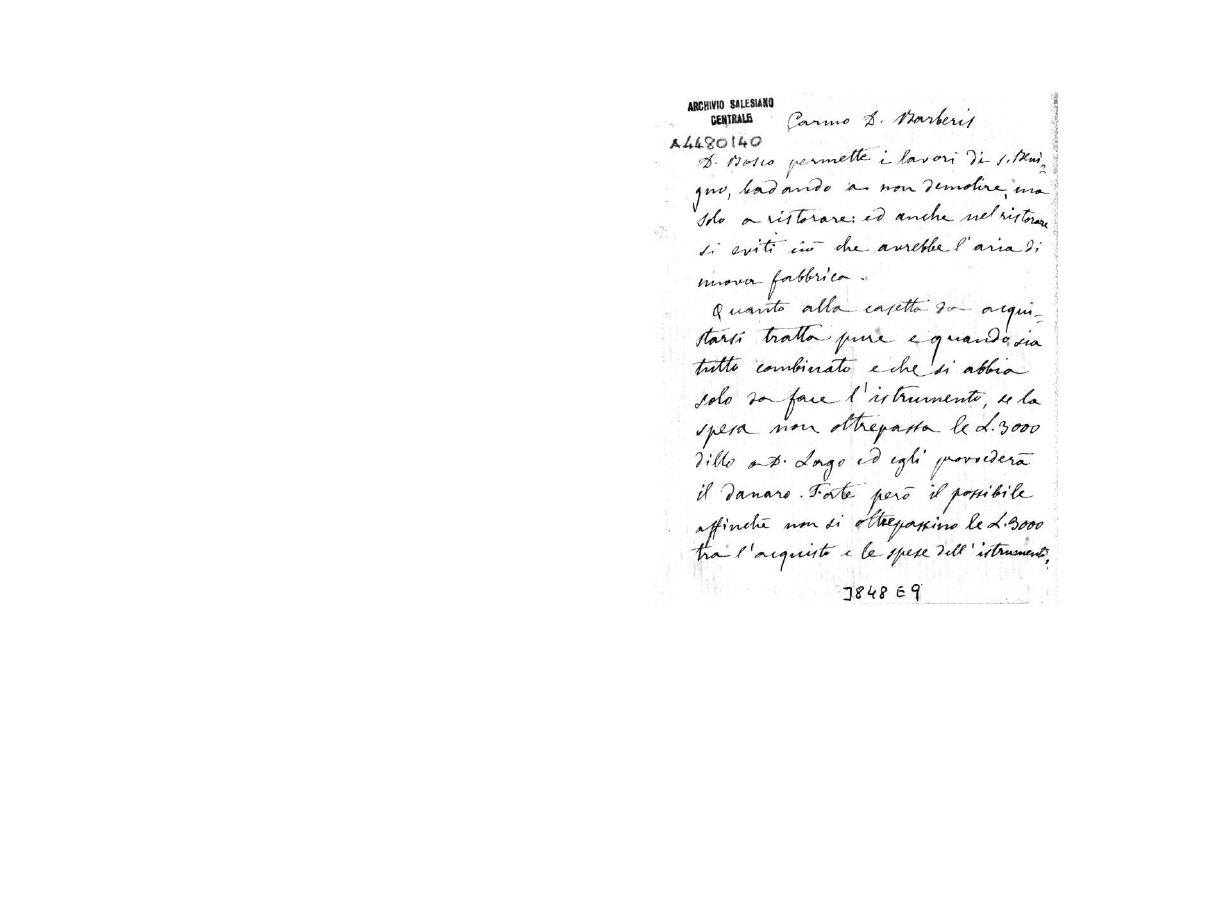 ARCHIVIO SALESIANO
CENTRALE
A4480140
Carmo D. Barberis
D. Bosco permette i lavori di S. Beni=
gno, badando a non demolire, ma
solo a ristorare: ed anche nel ristorare
si eviti ciò che avrebbe l'aria di
nuova fabbrica.
Quanto alla casetta da acqui-
starsi tratta pure e quando sia
tutto combinato e che si abbia
solo da fare l'istrumento, se la
spesa non oltrepassa le L.3000
dillo a D. Lago ed egli provvederà
il danaro. Fate però il possibile
affinchè non si oltrepassino le L.3000
tra l'acquisto e le spese dell'istrumento,
J848 E9